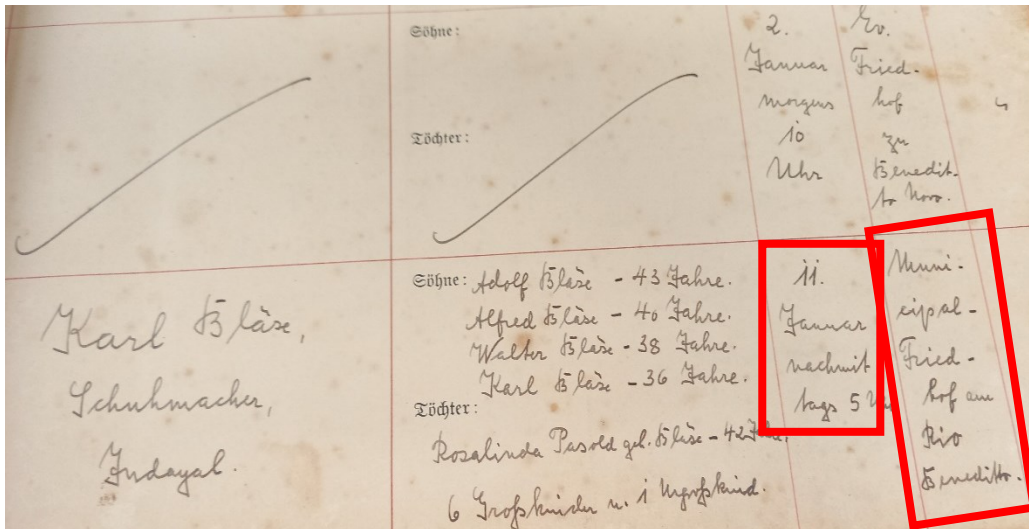 Söhne:
Töchter:
2.
Januar
morgens
10
Uhr
Ev.
Fried-
hof
zu
Benedit-
to Novo.
Karl Bläse,
Schuhmacher,
Indayal.
Söhne: Adolf Bläse - 43 Jahre.
Alfred Bläse - 40 Jahre.
Walter Bläse - 38 Jahre.
Karl Bläse - 36 Jahre.
Töchter:
Rosalinda Pasold geb. Bläse - 42 Jahre.
6 Großkinder u. 1 Urgroßkind.
11.
Januar
nachmit
tags 5 Uhr
Muni-
cipal-
Fried-
hof am
Rio
Beneditto.